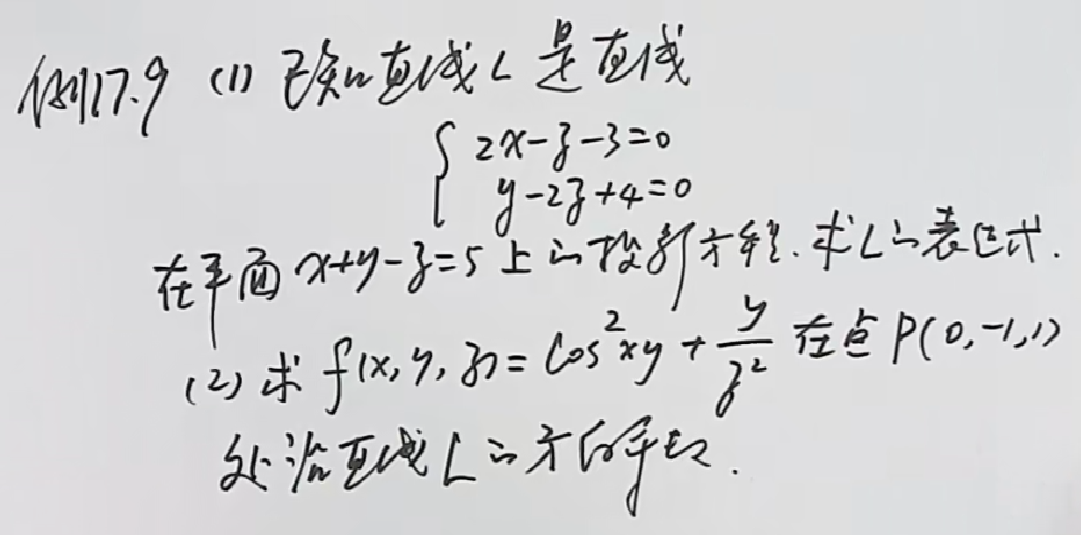 例17.9 (1) 已知直线L是直线
{ 2x-z-3=0
y-2z+4=0
在平面x+y-z=5上的投影方程.求L的表达式.
(2) 求f(x,y,z)=cos²xy+y/z² 在点P(0,-1,1)
处沿直线L的方向导数.